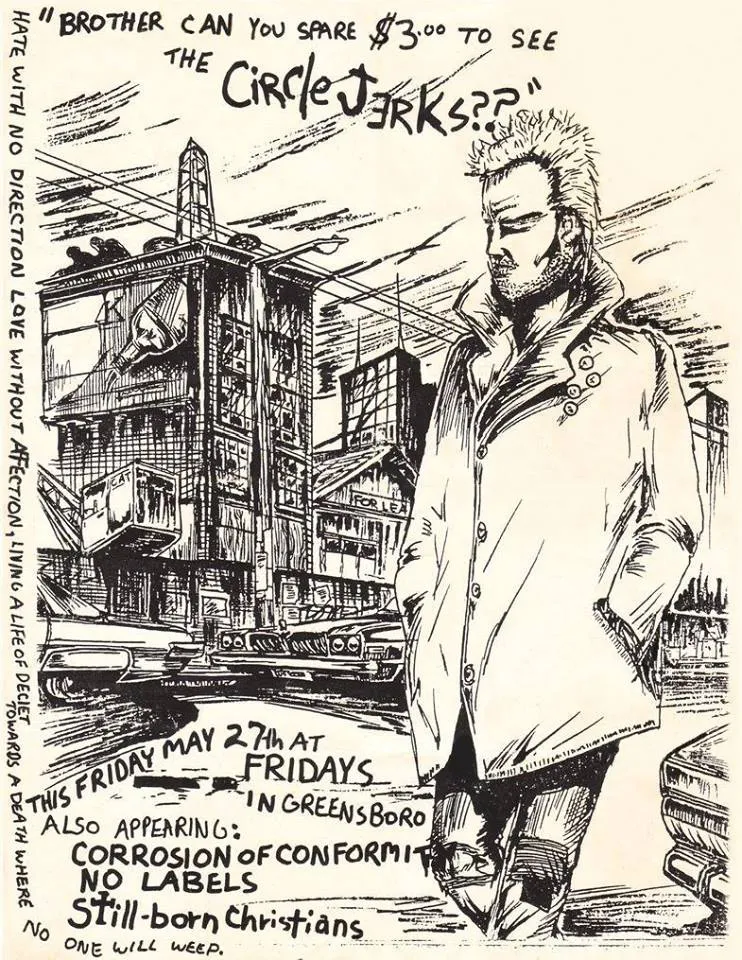 "BROTHER CAN YOU SPARE $3.00 TO SEE
THE CIRCLE JERKS??"
HATE WITH NO DIRECTION LOVE WITHOUT AFFECTION, LIVING A LIFE OF DECIET
TOWARDS A DEATH WHERE
NO ONE WILL WEEP.
K
CAT
FOR LEA
THIS FRIDAY MAY 27th AT
FRIDAYS
IN GREENSBORO
ALSO APPEARING:
CORROSION OF CONFORMIT
NO LABELS
Still-born Christians